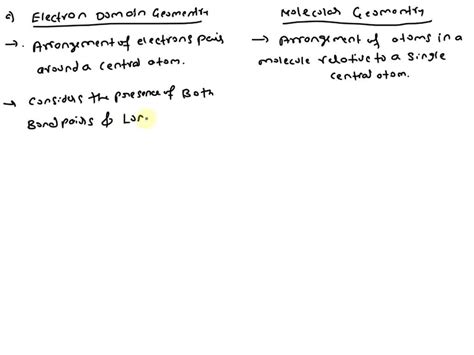 c) Electron Domain Geometry
→ Arrangement of electrons pairs
around a central atom.
→ Considers the presence of Both
Bond pairs & Lon
Molecular Geometry
→ Arrangement of atoms in a
molecule relative to a single
central atom.